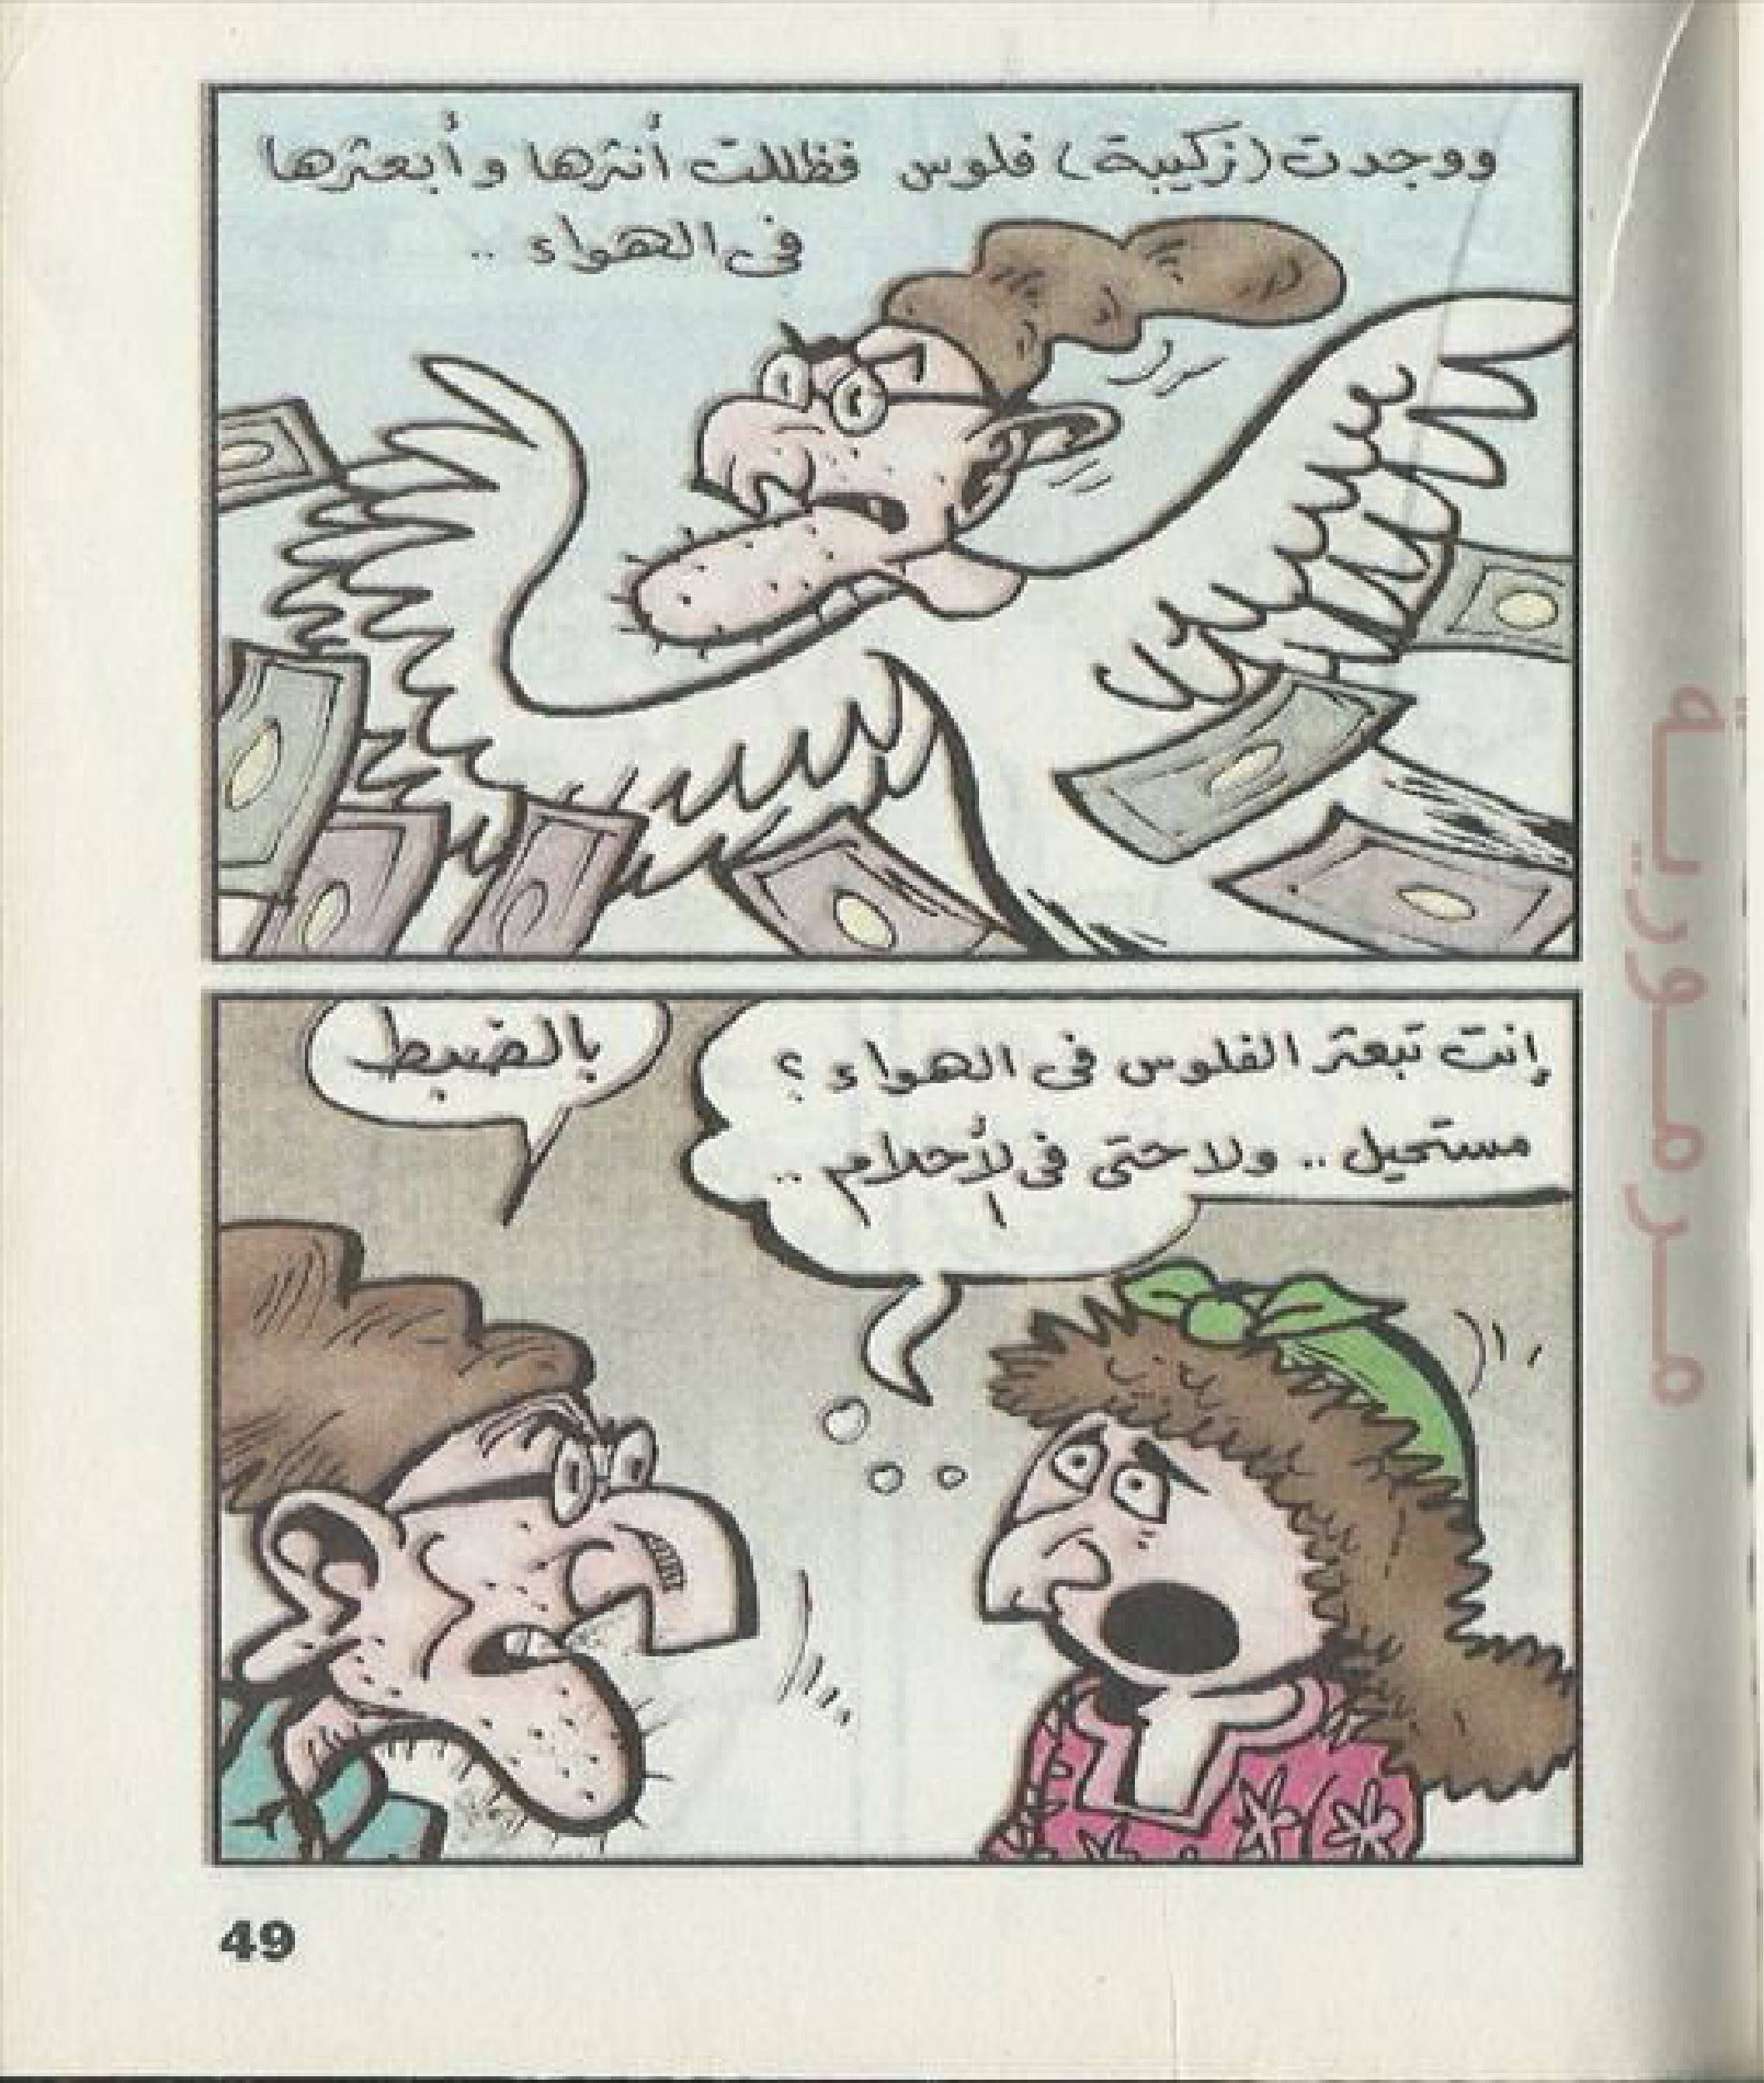 ووجدت (زكيبة) فلوس فظللت أنثرها وأبعثرها
فى الهواء ..
إنت تبعثر الفلوس فى الهواء ؟
مستحيل .. ولا حتى فى الأحلام ..
بالضبط
49
مدرمورية